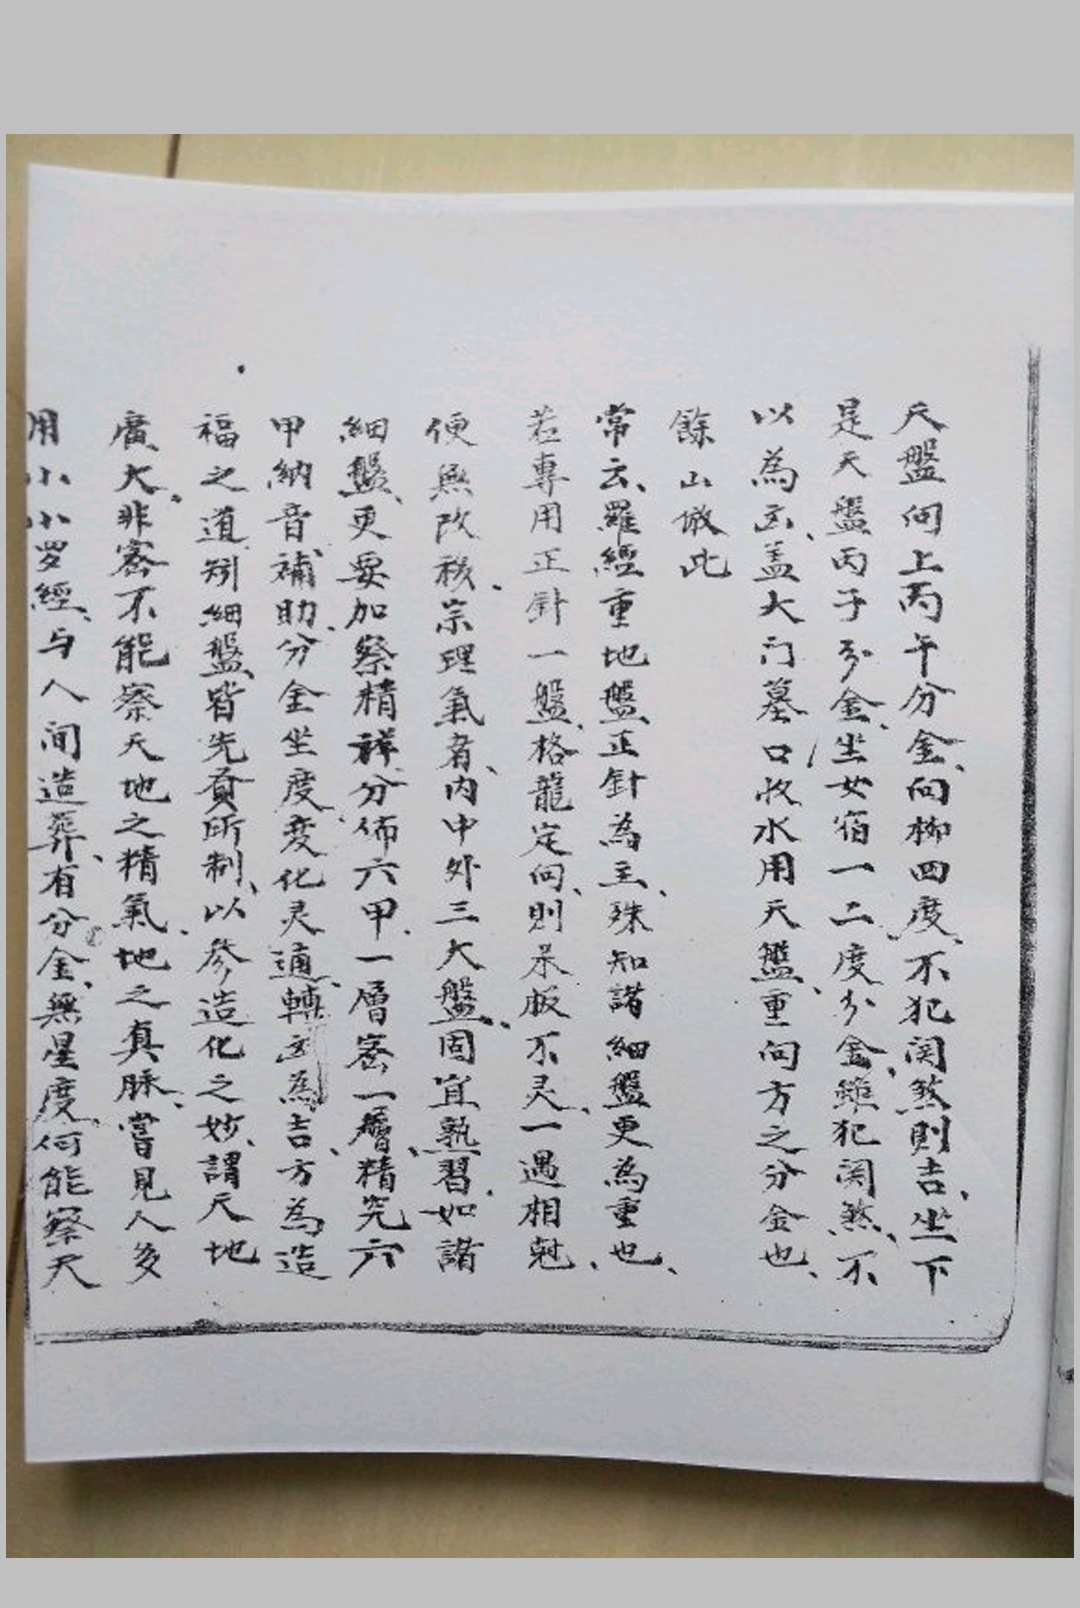 天盤向上丙午分金、向柳四度、不犯関煞則吉、坐下
是天盤丙子分金、坐女宿一二度分金、雖犯関煞、不
以為凶、盖大门墓口收水用天盤、重向方之分金也、
餘山倣此
常云、羅經重地盤正針為主、殊知諸細盤更為重也、
若專用正針一盤、格龍定向、則呆板不灵、一遇相尅、
便無改移、宗理氣者、内中外三大盤、固宜熟習、如諸
細盤、更要加察精祥、分佈六甲、一層密一層、精究六
甲納音補助、分金坐度、变化灵通、轉凶為吉、方為造
福之道、矧細盤、皆先贤所制、以參造化之妙、謂天地
廣大、非密不能察天地之精氣、地之真脉、嘗見人多
用小小罗經、与人间造葬、有分金、無星度、何能察天